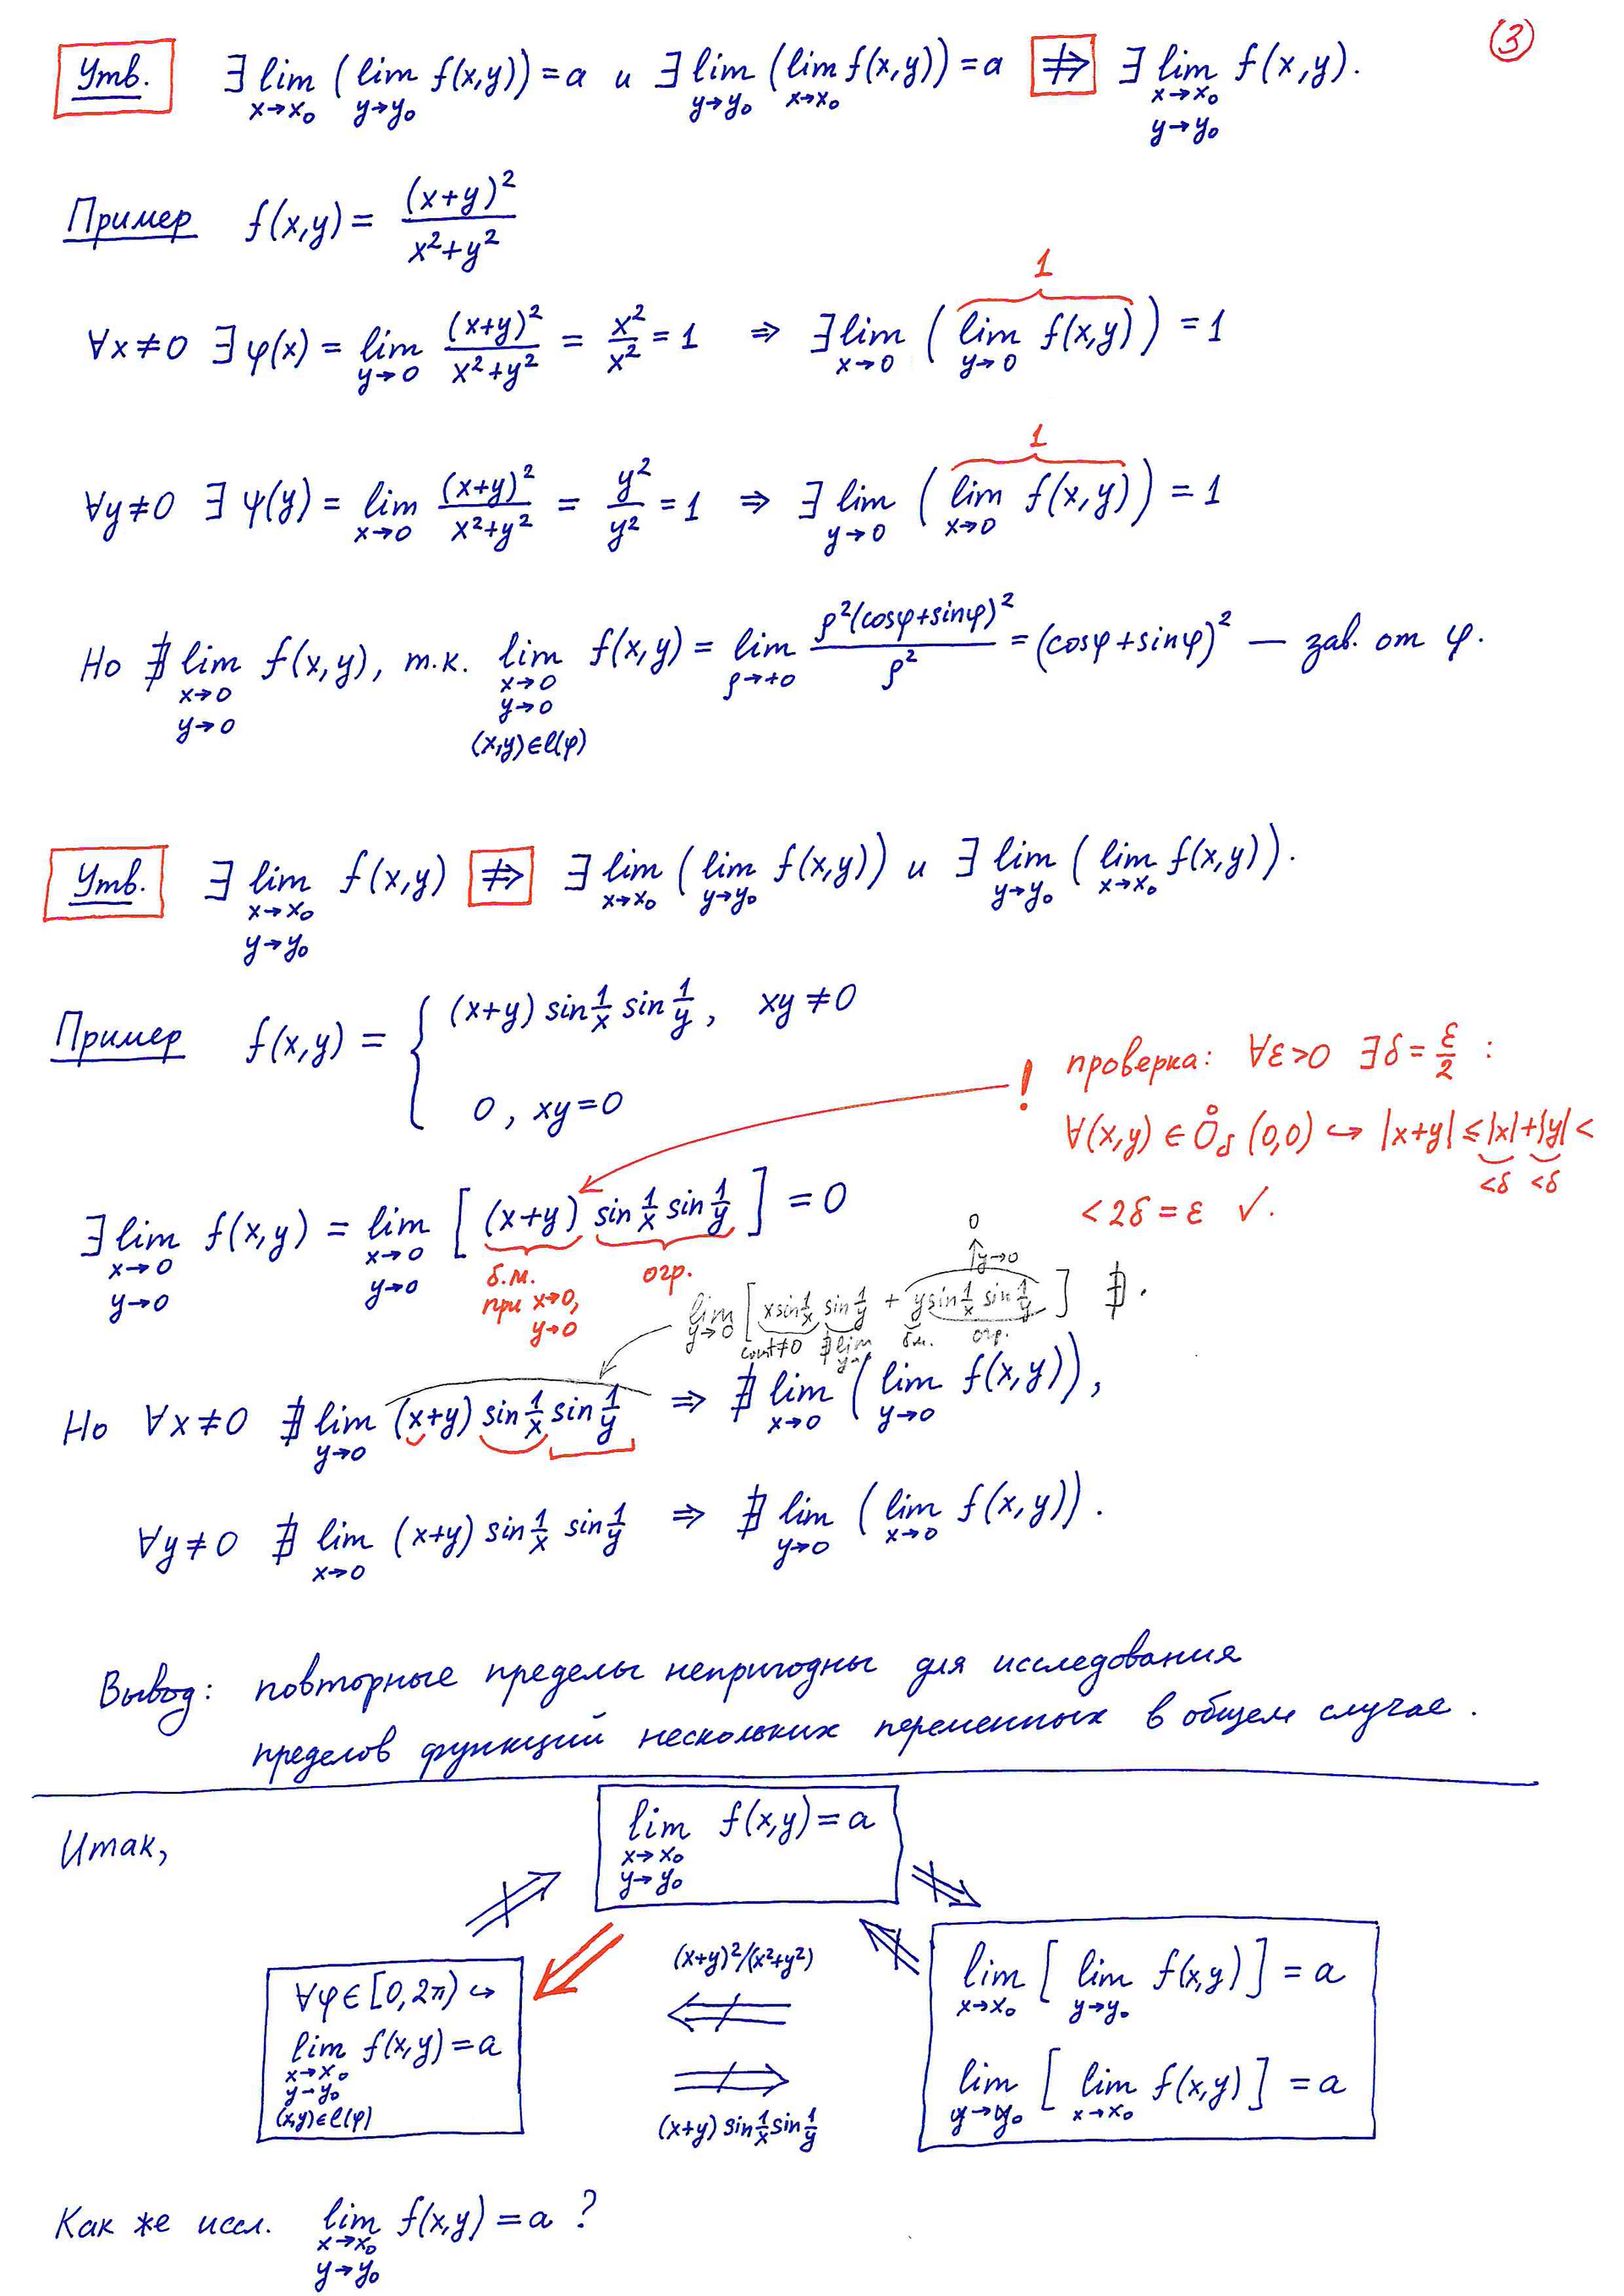 (3)
Утв. ∃ lim_{x→x₀} (lim_{y→y₀} f(x,y)) = a и ∃ lim_{y→y₀} (lim_{x→x₀} f(x,y)) = a ⇏ ∃ lim_{x→x₀, y→y₀} f(x,y).
Пример f(x,y) = (x+y)²/(x²+y²)
∀x≠0 ∃ φ(x) = lim_{y→0} (x+y)²/(x²+y²) = x²/x² = 1 ⇒ ∃ lim_{x→0} (lim_{y→0} f(x,y)) = 1
1
∀y≠0 ∃ ψ(y) = lim_{x→0} (x+y)²/(x²+y²) = y²/y² = 1 ⇒ ∃ lim_{y→0} (lim_{x→0} f(x,y)) = 1
1
Но ∄ lim_{x→0, y→0} f(x,y), т.к. lim_{x→0, y→0, (x,y)∈l(φ)} f(x,y) = lim_{ρ→+0} ρ²(cosφ+sinφ)²/ρ² = (cosφ+sinφ)² — зав. от φ.
Утв. ∃ lim_{x→x₀, y→y₀} f(x,y) ⇏ ∃ lim_{x→x₀} (lim_{y→y₀} f(x,y)) и ∃ lim_{y→y₀} (lim_{x→x₀} f(x,y)).
Пример f(x,y) = { (x+y) sin 1/x sin 1/y, xy≠0
0, xy=0
! проверка: ∀ε>0 ∃δ = ε/2 :
∀(x,y) ∈ O̊_δ (0,0) ↪ |x+y| ≤ |x|+|y| <
<δ <δ
< 2δ = ε ✓.
∃ lim_{x→0, y→0} f(x,y) = lim_{x→0, y→0} [(x+y) sin 1/x sin 1/y] = 0
б.м. при x→0, y→0
огр.
0
↑ y→0
lim_{y→0} [x sin 1/x sin 1/y + y sin 1/x sin 1/y] ∄.
const≠0 ∄ lim y→ б.м. огр.
Но ∀x≠0 ∄ lim_{y→0} (x+y) sin 1/x sin 1/y ⇒ ∄ lim_{x→0} (lim_{y→0} f(x,y)),
∀y≠0 ∄ lim_{x→0} (x+y) sin 1/x sin 1/y ⇒ ∄ lim_{y→0} (lim_{x→0} f(x,y)).
Вывод: повторные пределы непригодны для исследования
пределов функций нескольких переменных в общем случае.
Итак,
lim_{x→x₀, y→y₀} f(x,y) = a
∀φ∈[0,2π) ↪
lim_{x→x₀, y→y₀, (x,y)∈l(φ)} f(x,y) = a
(x+y)²/(x²+y²)
(x+y) sin 1/x sin 1/y
lim_{x→x₀} [lim_{y→y₀} f(x,y)] = a
lim_{y→y₀} [lim_{x→x₀} f(x,y)] = a
Как же иссл. lim_{x→x₀, y→y₀} f(x,y) = a ?